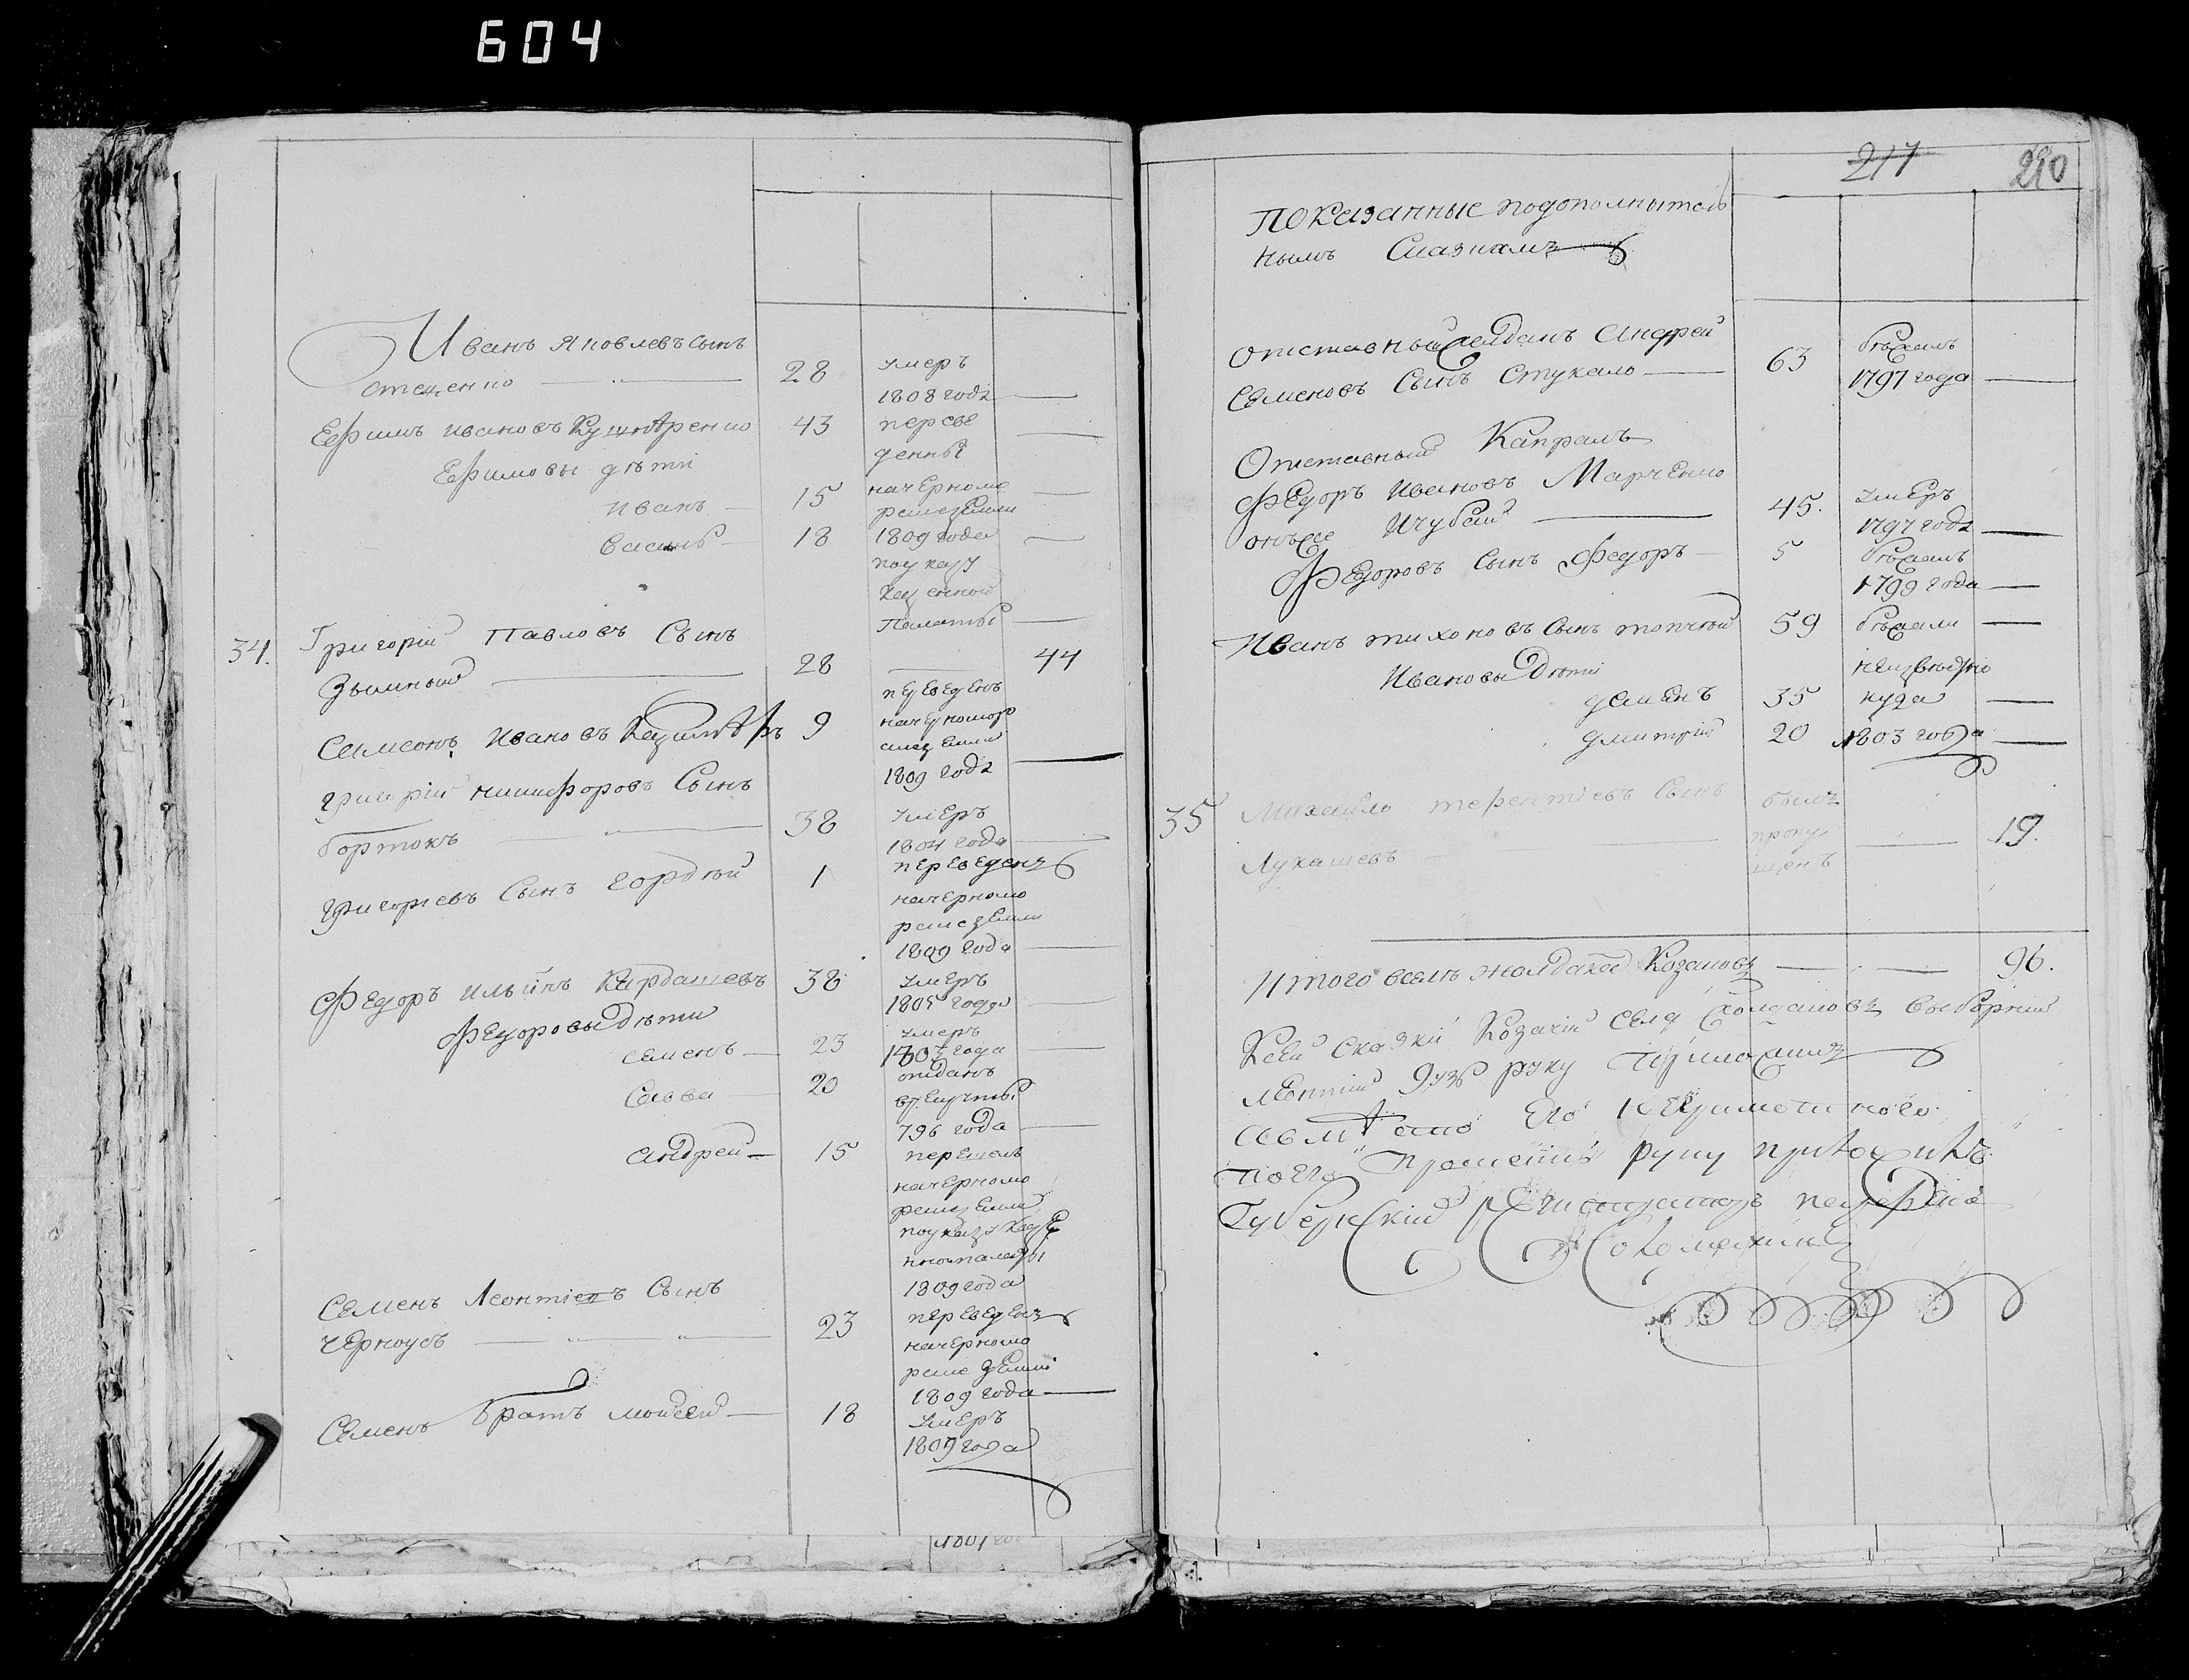 604
Иванъ Яковлевъ сынъ
стеценко 28 умеръ
1808 года
Ефимъ ивановъ Кушнѣренко 43 переве
денны
Ефимовы дѣти
иванъ 15 начерномо
рскиеземли
18 1809 года
поуказу
казенной
Палаты
34. Григорій Павловъ Сынъ
Зимный 28 44
Самсонъ Ивановъ 9 переведенъ
начерномор
скиеземли
1809 года
григорій никифоровъ Сынъ
бортокъ 38 умеръ
1804 года
григорievъ Сынъ гордѣй 1 переведенъ
начерномо
рскиеземли
1809 года
Федоръ ильинъ Кардашевъ 38 умеръ
1805 года
Федоровы дѣти
семенъ 23 умеръ
1807 года
Савва 20 отданъ
врекруты
796 года
андрей 15 перешелъ
начерномо
рскиеземли
поуказу казе
нной палаты
1809 года
Семенъ Леонтіевъ Сынъ
черноусъ 23 переведенъ
начерномо
рские земли
1809 года
Семенъ братъ мойсей 18 умеръ
1807 года
1801
217 290
показанные подополнитель
нымъ Сказкамъ
отставный салдатъ андрей
Семеновъ Сынъ Стукало 63 бѣжалъ
1797 года
Отставный Капралъ
Федоръ ивановъ Марченко
онъже 45. умеръ
1797 года
Федоровъ Сынъ Федоръ 5 бѣжалъ
1799 года
Иванъ тихоновъ Сынъ 59 бѣжали
Ивановы дѣти неизвѣстно
демянъ 35 куда
дмитрій 20 1803 года
35 Михайло терентіевъ Сынъ былъ
Лукашевъ пропу
щенъ 19.
Итого Козаковъ 96.
Ксей сказки Козачій Села выборный
леонтій руку приложилъ
авмѣсто его неграмотного
поего прошению руку приложилъ
Губернскій регистраторъ